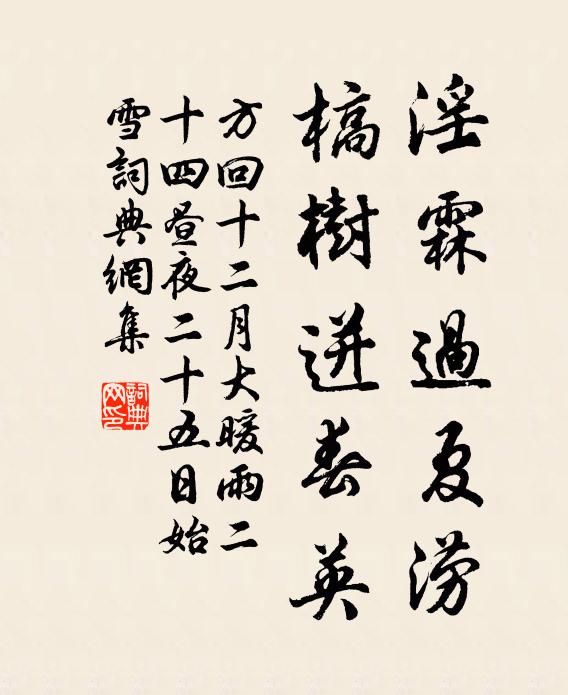 淫霖過夏澇
槁樹迸春英
方回十二月大暖雨二
十四昼夜二十五日始
雪詞典網集
詞典网印